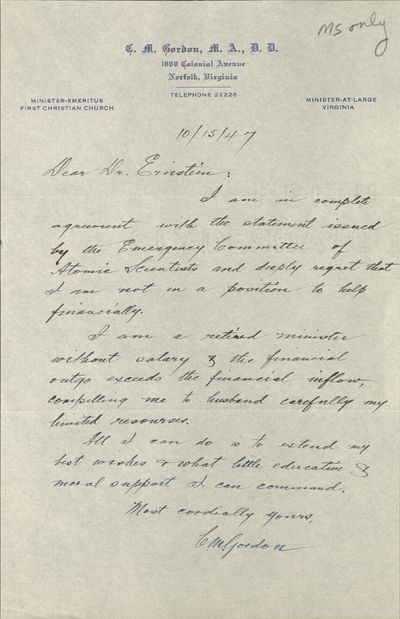 MS only
C. M. Gordon, M. A., D. D.
1800 Colonial Avenue
Norfolk, Virginia
TELEPHONE 22226
MINISTER-EMERITUS
FIRST CHRISTIAN CHURCH
MINISTER-AT-LARGE
VIRGINIA
10/15/47
Dear Dr. Einstein:
I am in complete
agreement with the statement issued
by the Emergency Committee of
Atomic Scientists and deeply regret that
I am not in a position to help
financially.
I am a retired minister
without salary & the financial
outgo exceeds the financial inflow,
compelling me to husband carefully my
limited resourses.
All I can do is to extend my
best wishes & what little educative &
moral support I can command.
Most cordially yours,
C.M.Gordon